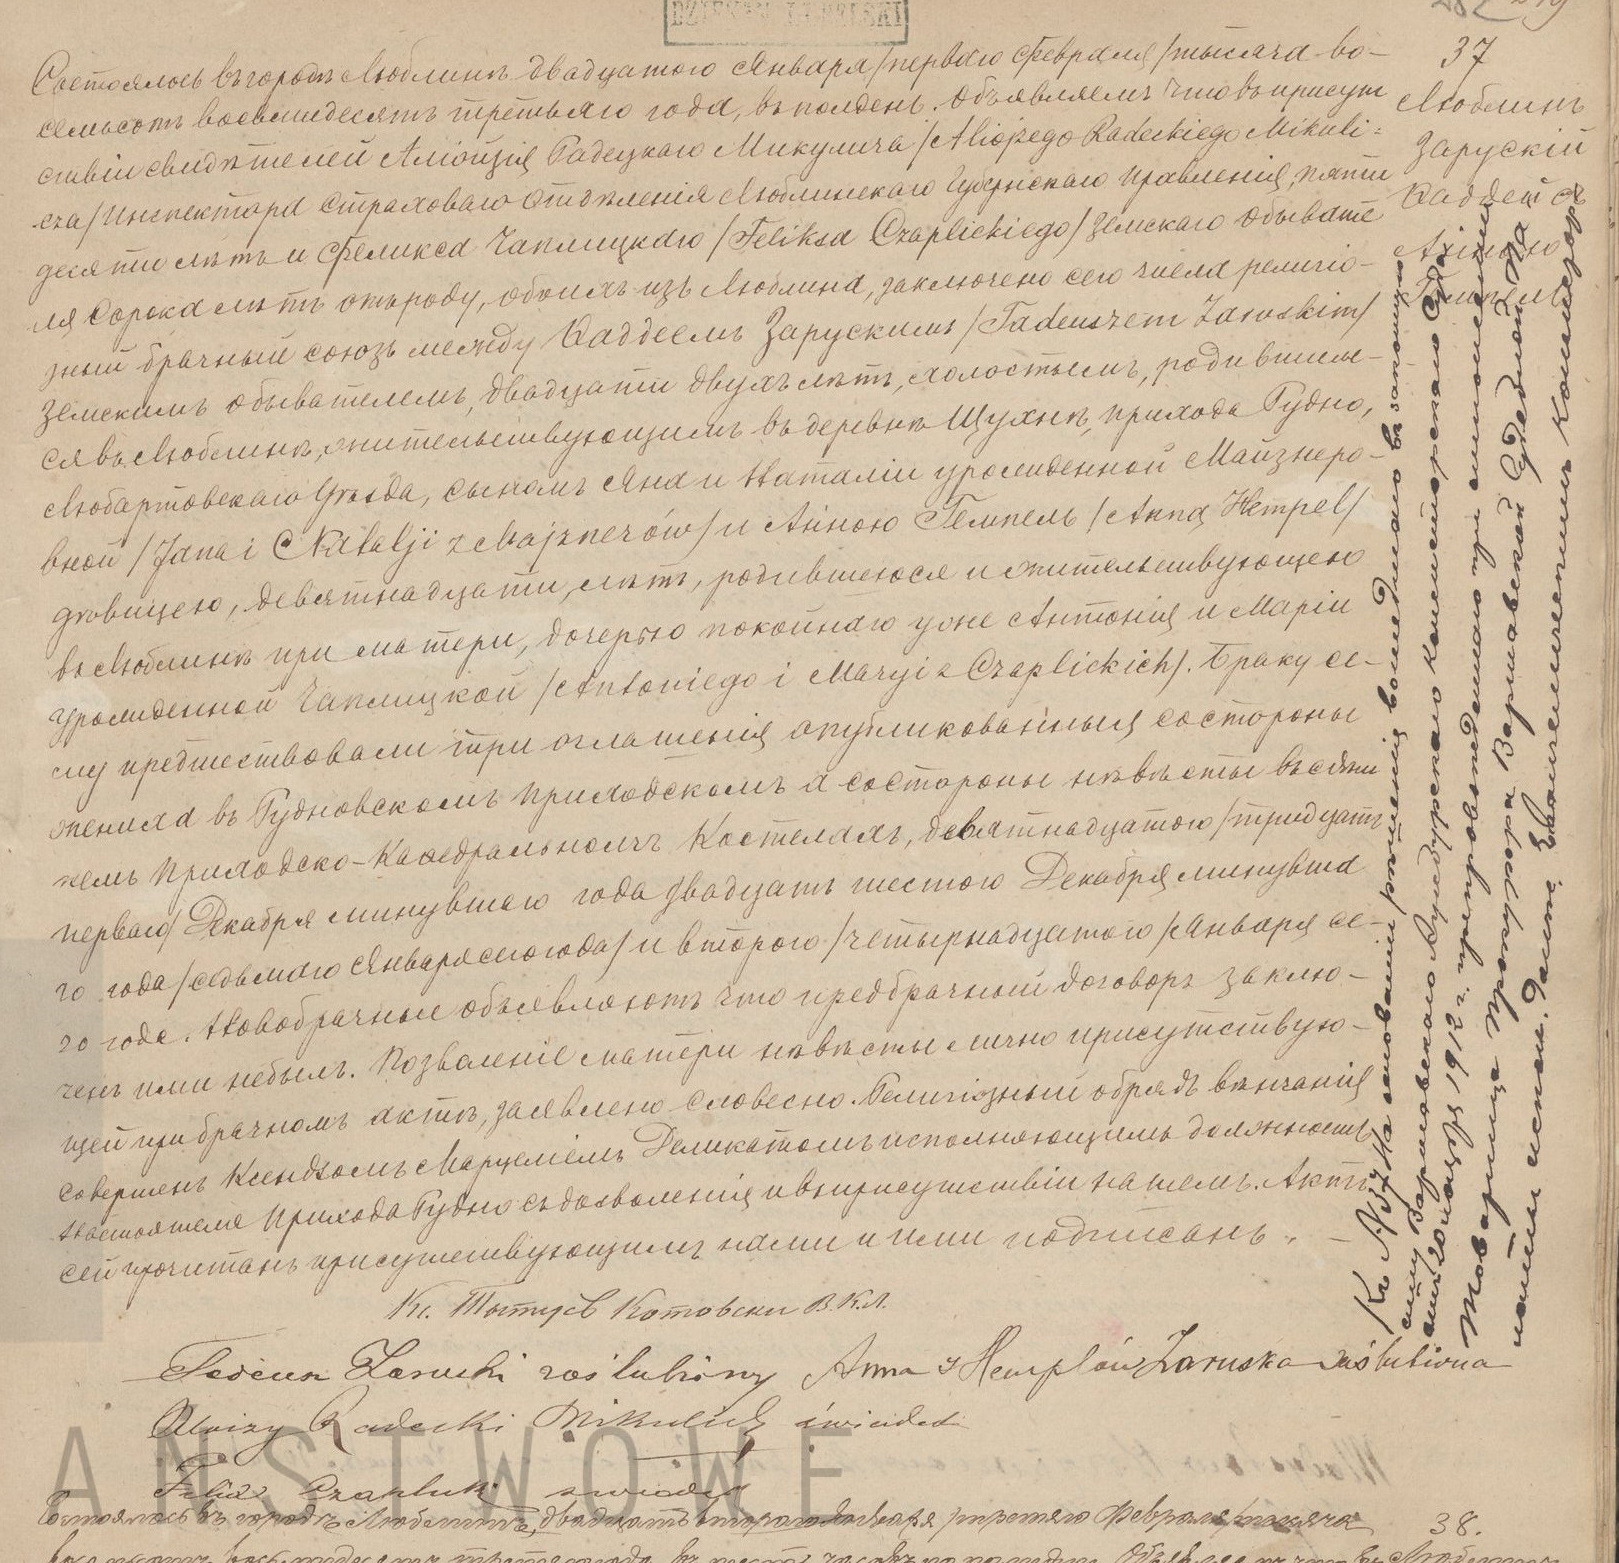 37
Люблинъ
Зарускій
Фаддей съ
Анною
Гемпель
Состоялось въ городѣ Люблинѣ двадцатого Января /перваго Февраля/ тысяча во-
семьсотъ восемьдесятъ третьяго года, въ полдень. Объявляемъ что въ присут
ствіи свидѣтелей Алоизія Радецкаго Микулича /Alojzego Radeckiego Mikuli=
cza/ Инспектора Страховаго Отдѣленія Люблинскаго Губернскаго Правленія, пяти
десяти лѣтъ и Феликса Чаплицкаго /Feliksa Czaplickiego/ Земскаго Обывате
ля Сорока лѣтъ отъ роду, обоихъ изъ Люблина, заключено сего числа религіо-
зный брачный союзъ между Фаддеемъ Зарускимъ /Tadeuszem Zaruskim/
Земскимъ обывателемъ, двадцати двухъ лѣтъ, холостымъ, родившим-
ся въ Люблинѣ, жительствующимъ въ деревнѣ Щухнѣ, прихода Рудно,
Любартовскаго Уѣзда, сыномъ Яна и Наталіи урожденной Майзнеро-
вной /Jana i Natalji z Majznerów/ и Анною Гемпель /Anną Hempel/
дѣвицею, девятнадцати лѣтъ, родившеюся и жительствующею
въ Люблинѣ при матери, дочерью покойнаго уже Антонія и Маріи
урожденной Чаплицкой /Antoniego i Maryi z Czaplickich/. Браку се-
му предшествовали три оглашенія опубликованныя со стороны
жениха въ Рудновскомъ Приходскомъ а со стороны невѣсты въ здѣш
немъ Приходско-Кафедральномъ Костелахъ, девятнадцатого /тридцать
перваго/ Декабря минувшаго года двадцать шестого Декабря минувша
го года /седьмаго Января сего года/ и второго /четырнадцатого/ Января се-
го года. Новобрачные объявляютъ что предбрачный договоръ заклю-
ченъ ими небылъ. Позволеніе матери невѣсты лично присутствую-
щей при брачномъ актѣ, заявлено словесно. Религіозный обрядъ вѣнчанія
совершенъ Ксендзомъ Марцеліемъ Деликатомъ исполняющимъ должность
Настоятеля Прихода Рудно съ дозволенія и въ присутствіи нашемъ. Актъ
сей прочитанъ присутствующимъ нами и ими подписанъ. —
Кс. Титусъ Котовски В.К.Л.
Tadeusz Zaruski zaślubiony Anna z Hemplów Zaruska zaślubiona
Alojzy Radecki Mikulicz świadek
Felix Czaplicki świadek
Къ №37 На основаніи рѣшенія вошедшаго въ законную
силу Варшавскаго Аугсбургскаго Консисторскаго Суда
1912 г. препровожденнаго при отношеніи
Товарища Прокурора Варшавской Судебной
Евангелическимъ
ANSTWOWE
Состоялось въ городѣ Люблинѣ, двадцать втораго Января /третяго Февраля/ тысяча
38.